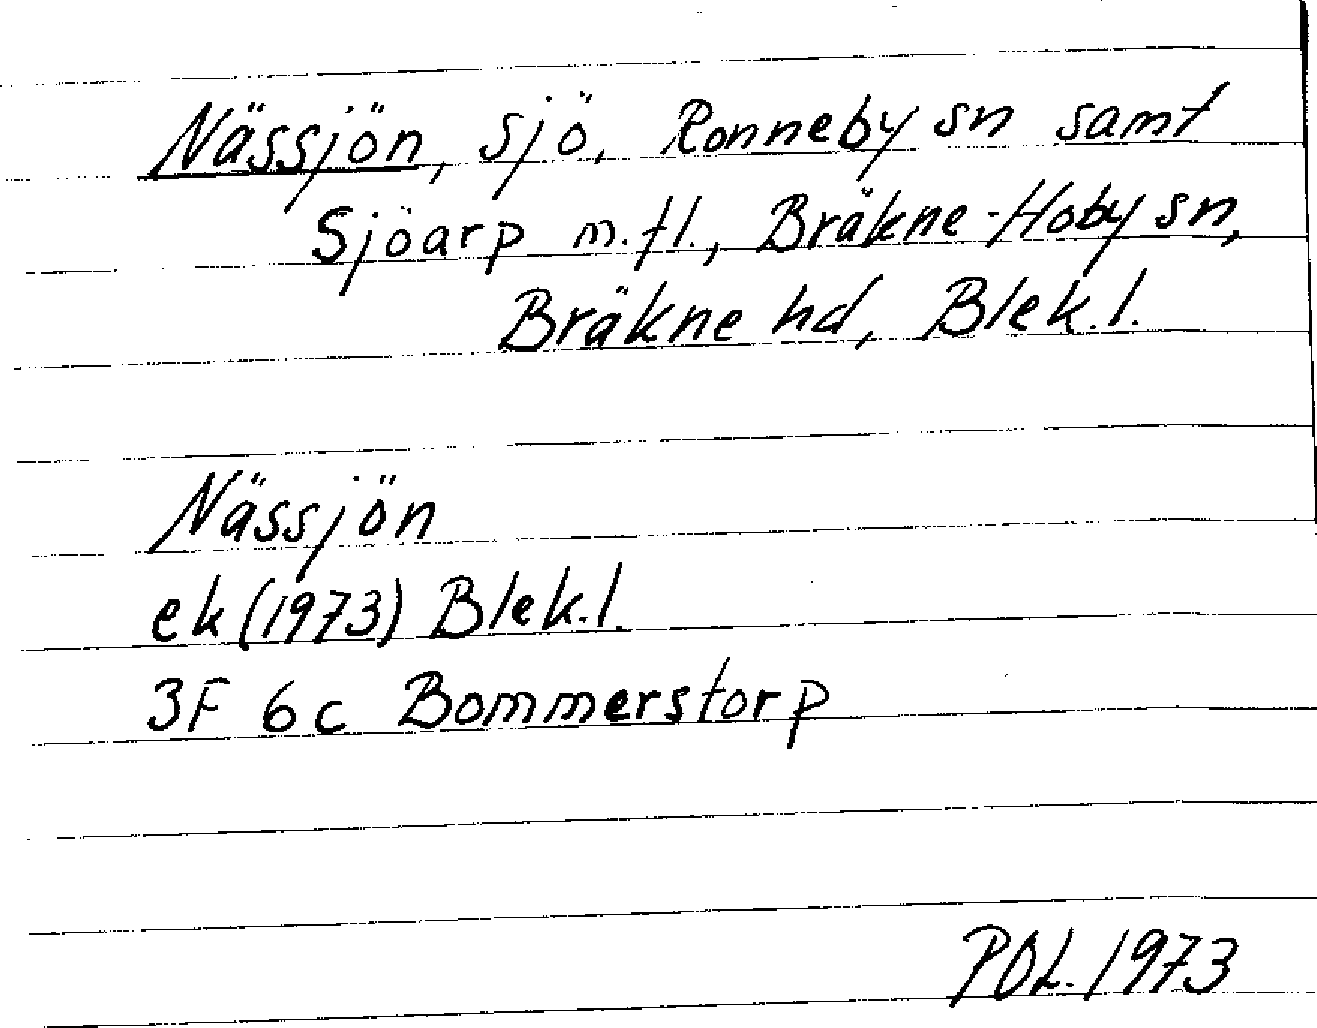 Nässjön, sjö, Ronneby sn samt
Sjöarp m.fl., Bräkne-Hoby sn,
Bräkne hd, Blek.l.
Nässjön
ek (1973) Blek.l.
3F 6c Bommerstorp
POL. 1973